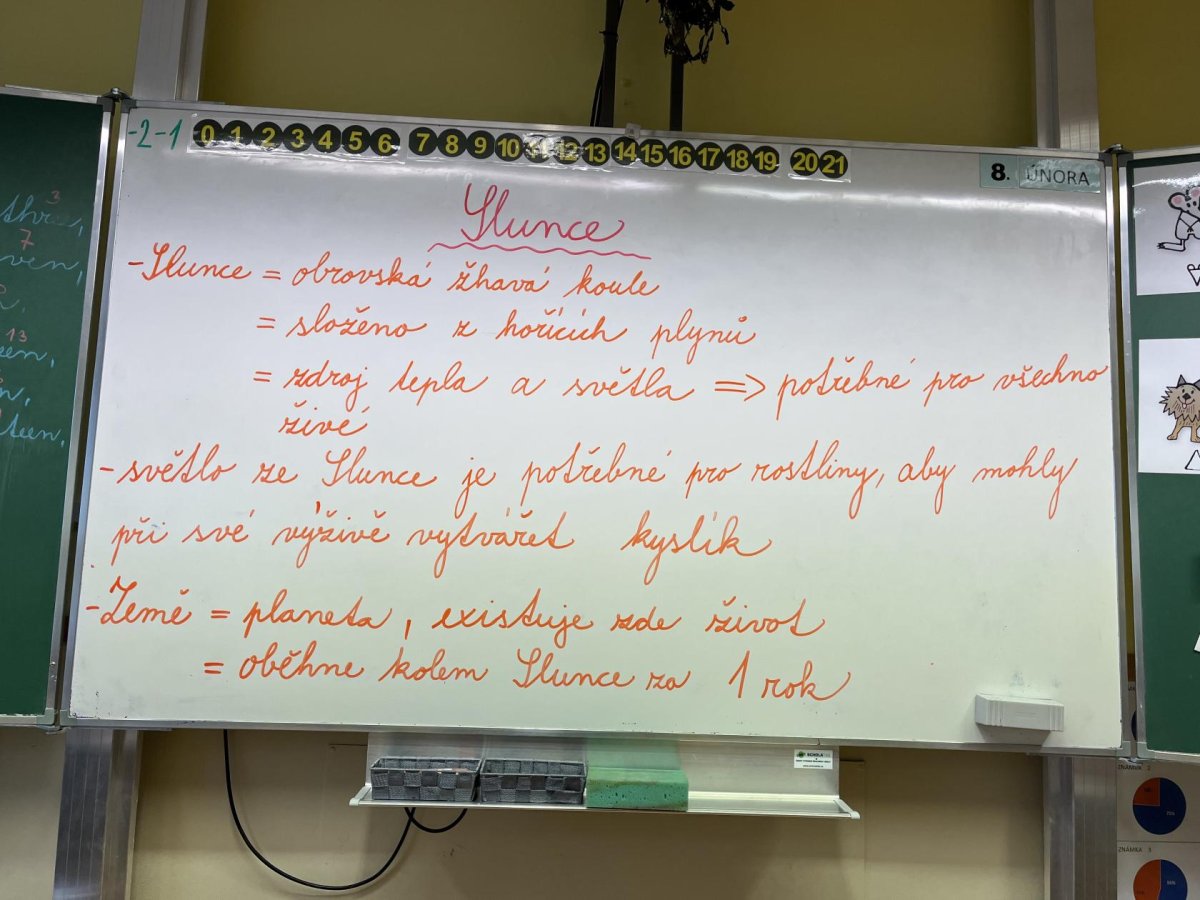 -2 -1 0 1 2 3 4 5 6 7 8 9 10 11 12 13 14 15 16 17 18 19 20 21
8. ÚNORA
Slunce
- Slunce = obrovská žhavá koule
= složeno z hořících plynů
= zdroj tepla a světla => potřebné pro všechno
živé
- světlo ze Slunce je potřebné pro rostliny, aby mohly
při své výživě vytvářet kyslík
- Země = planeta, existuje zde život
= oběhne kolem Slunce za 1 rok
3
7
13
SCHOLA
ZNÁMKA 2
ZNÁMKA 3